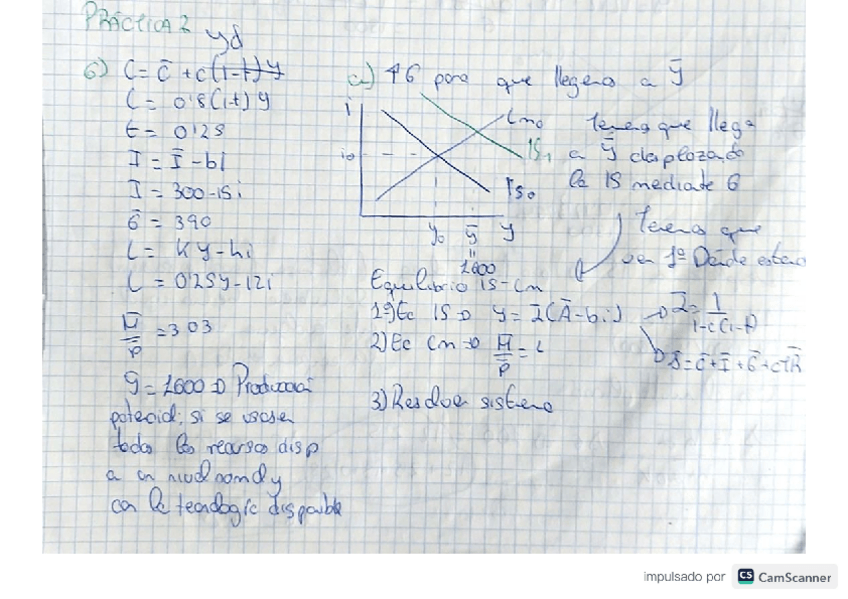 PRÁCTICA 2
yd
6) C = C̄ + c(1-t)y
C = 0'8(1-t)y
t = 0'25
I = Ī - bi
I = 300-15i
Ḡ = 390
L = Ky-hi
L = 0'25y-12i
M̄/P̄ = 303
ȳ = 1600 ⇒ Producción
potencial; si se usasen
todos los recursos disp
a un nivel normal y
con la tecnología disponible
a) ↑G para que llegemos a ȳ
i
Lm0
IS1
i0
IS0
y0 ȳ y
"
1600
tenemos que llega
a ȳ desplazando
la IS mediate G
tenemos que
ver 1º Dónde estamos
Equilibrio IS-Lm
1º) Ec IS ⇒ y = ᾱ(Ā-bi) → ᾱ = 1/1-c(1-t)
Ā = C̄ + Ī + Ḡ + cTR̄
2) Ec Lm ⇒ M̄/P̄ = L
3) Resolver sistema
impulsado por CS CamScanner